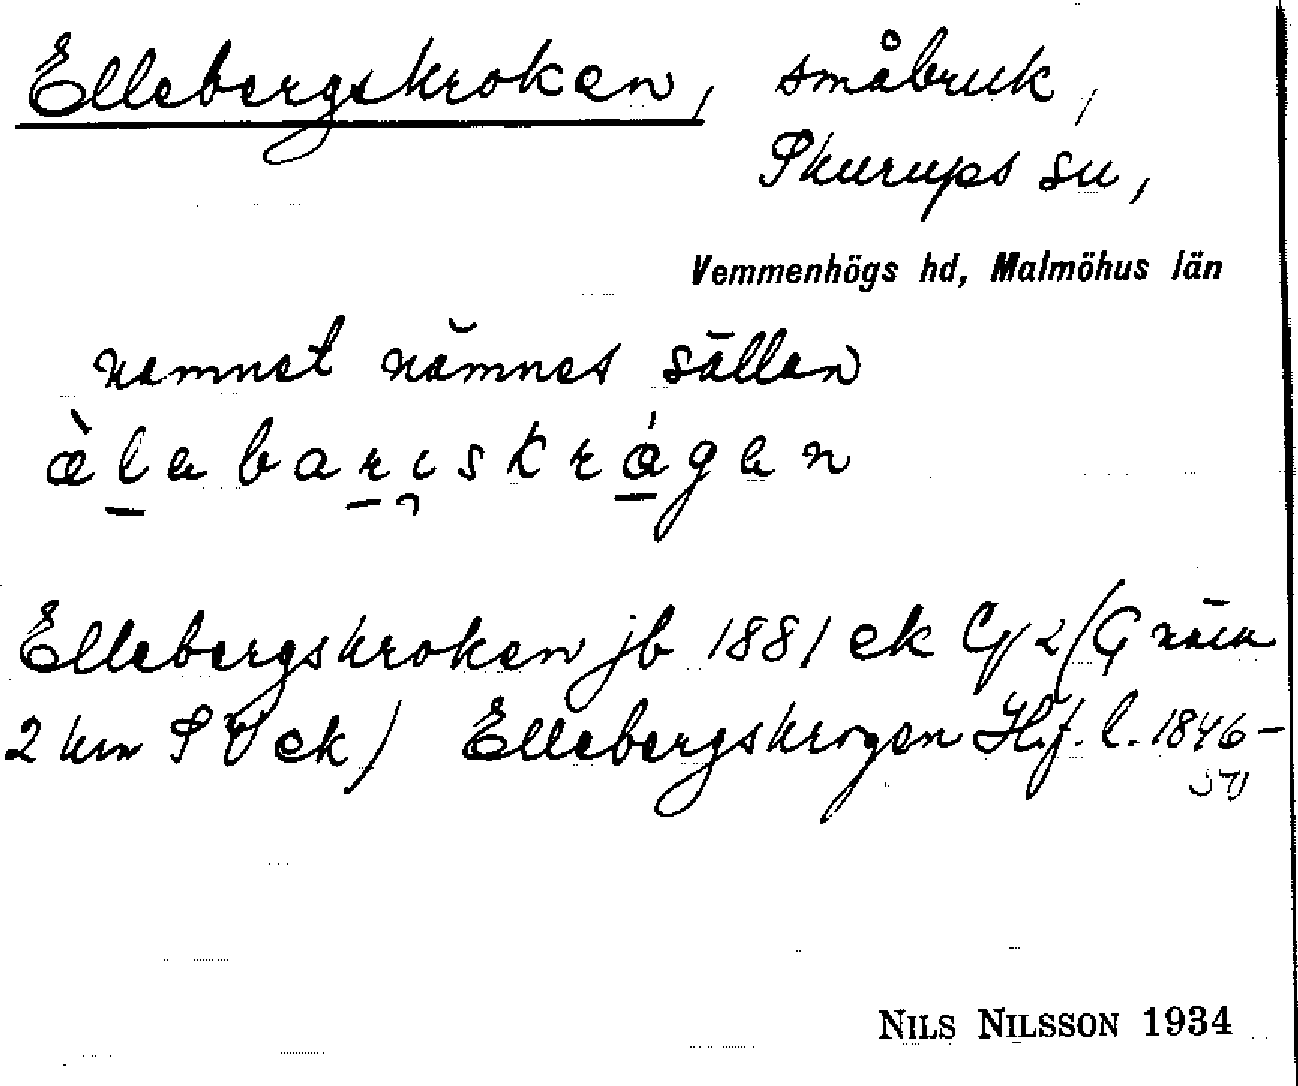 Ellebergskroken, småbruk,
Skurups sn,
Vemmenhögs hd, Malmöhus län
namnet nämnes sällan
Ellebergskroken jb 1881 ek
2 km SV ek) Ellebergskrogen Hf. l. 1846-
NILS NILSSON 1934